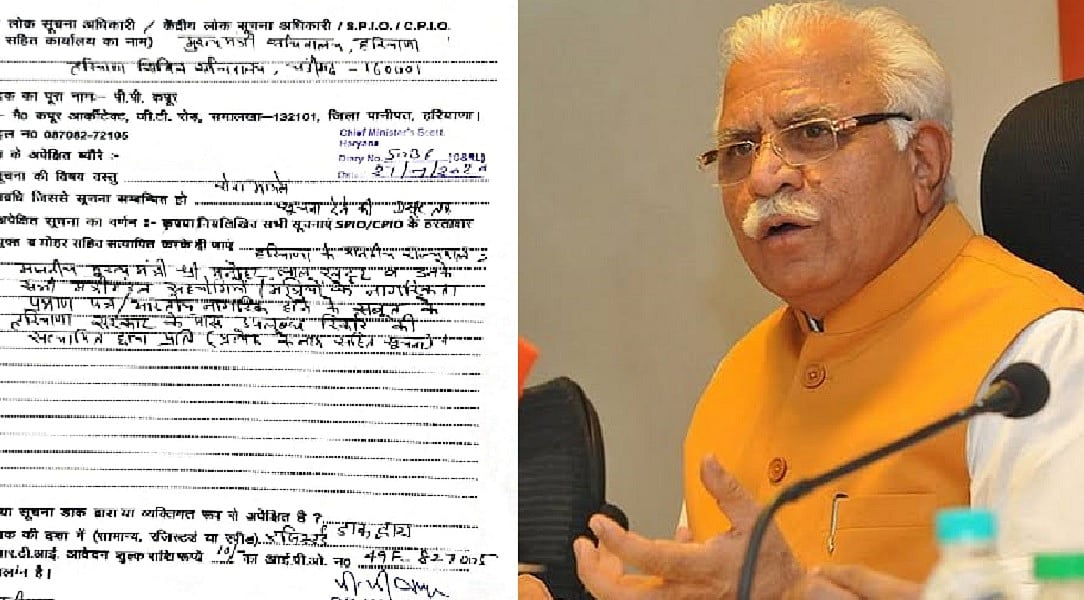 लोक सूचना अधिकारी / केंद्रीय लोक सूचना अधिकारी / S.P.I.O./ C.P.I.O.
सहित कार्यालय का नाम) मुख्यमंत्री सचिवालय, हरियाणा
हरियाणा सिविल सचिवालय, चंडीगढ़ - 160001
दक का पूरा नाम:- पी.पी. कपूर
- मै0 कपूर आर्कीटेक्ट, जी.टी. रोड, समालखा-132101, जिला पानीपत, हरियाणा।
इल न0 087082-72105
Chief Minister's Sectt.
Haryana
Diary No.
के अपेक्षित ब्यौरे :-
Date
सूचना की विषय वस्तु
वधि जिससे सूचना सम्बन्धित हो सूचना देने की
अपेक्षित सूचना का वर्णन :- कृपया निम्नलिखित सभी सूचनाएं SPIO/CPIO के हस्ताक्षर
युक्त व मोहर सहित सत्यापित करके ही दी जाएं हरियाणा के माननीय राज्यपाल,
माननीय मुख्य मंत्री श्री मनोहर लाल खट्टर व उनके
सभी मंत्रीमंडल सहयोगियों (मंत्रियों) के नागरिकता
प्रमाण पत्र/भारतीय नागरिक होने के सबूत के
हरियाणा सरकार के पास उपलब्ध रिकार्ड की
सत्यापित छाया प्रति (प्रत्येक के नाम सहित सूचना)
या सूचना डाक द्वारा या व्यक्तिगत रूप से अपेक्षित है ?
क की दशा में (सामान्य, रजिस्टर्ड या स्पीड) रजिस्टर्ड डाक द्वारा
आर.टी.आई. आवेदन शुल्क राशि रूपये 10/- का आई.पी.ओ. न0 49F 827005
लांन है।